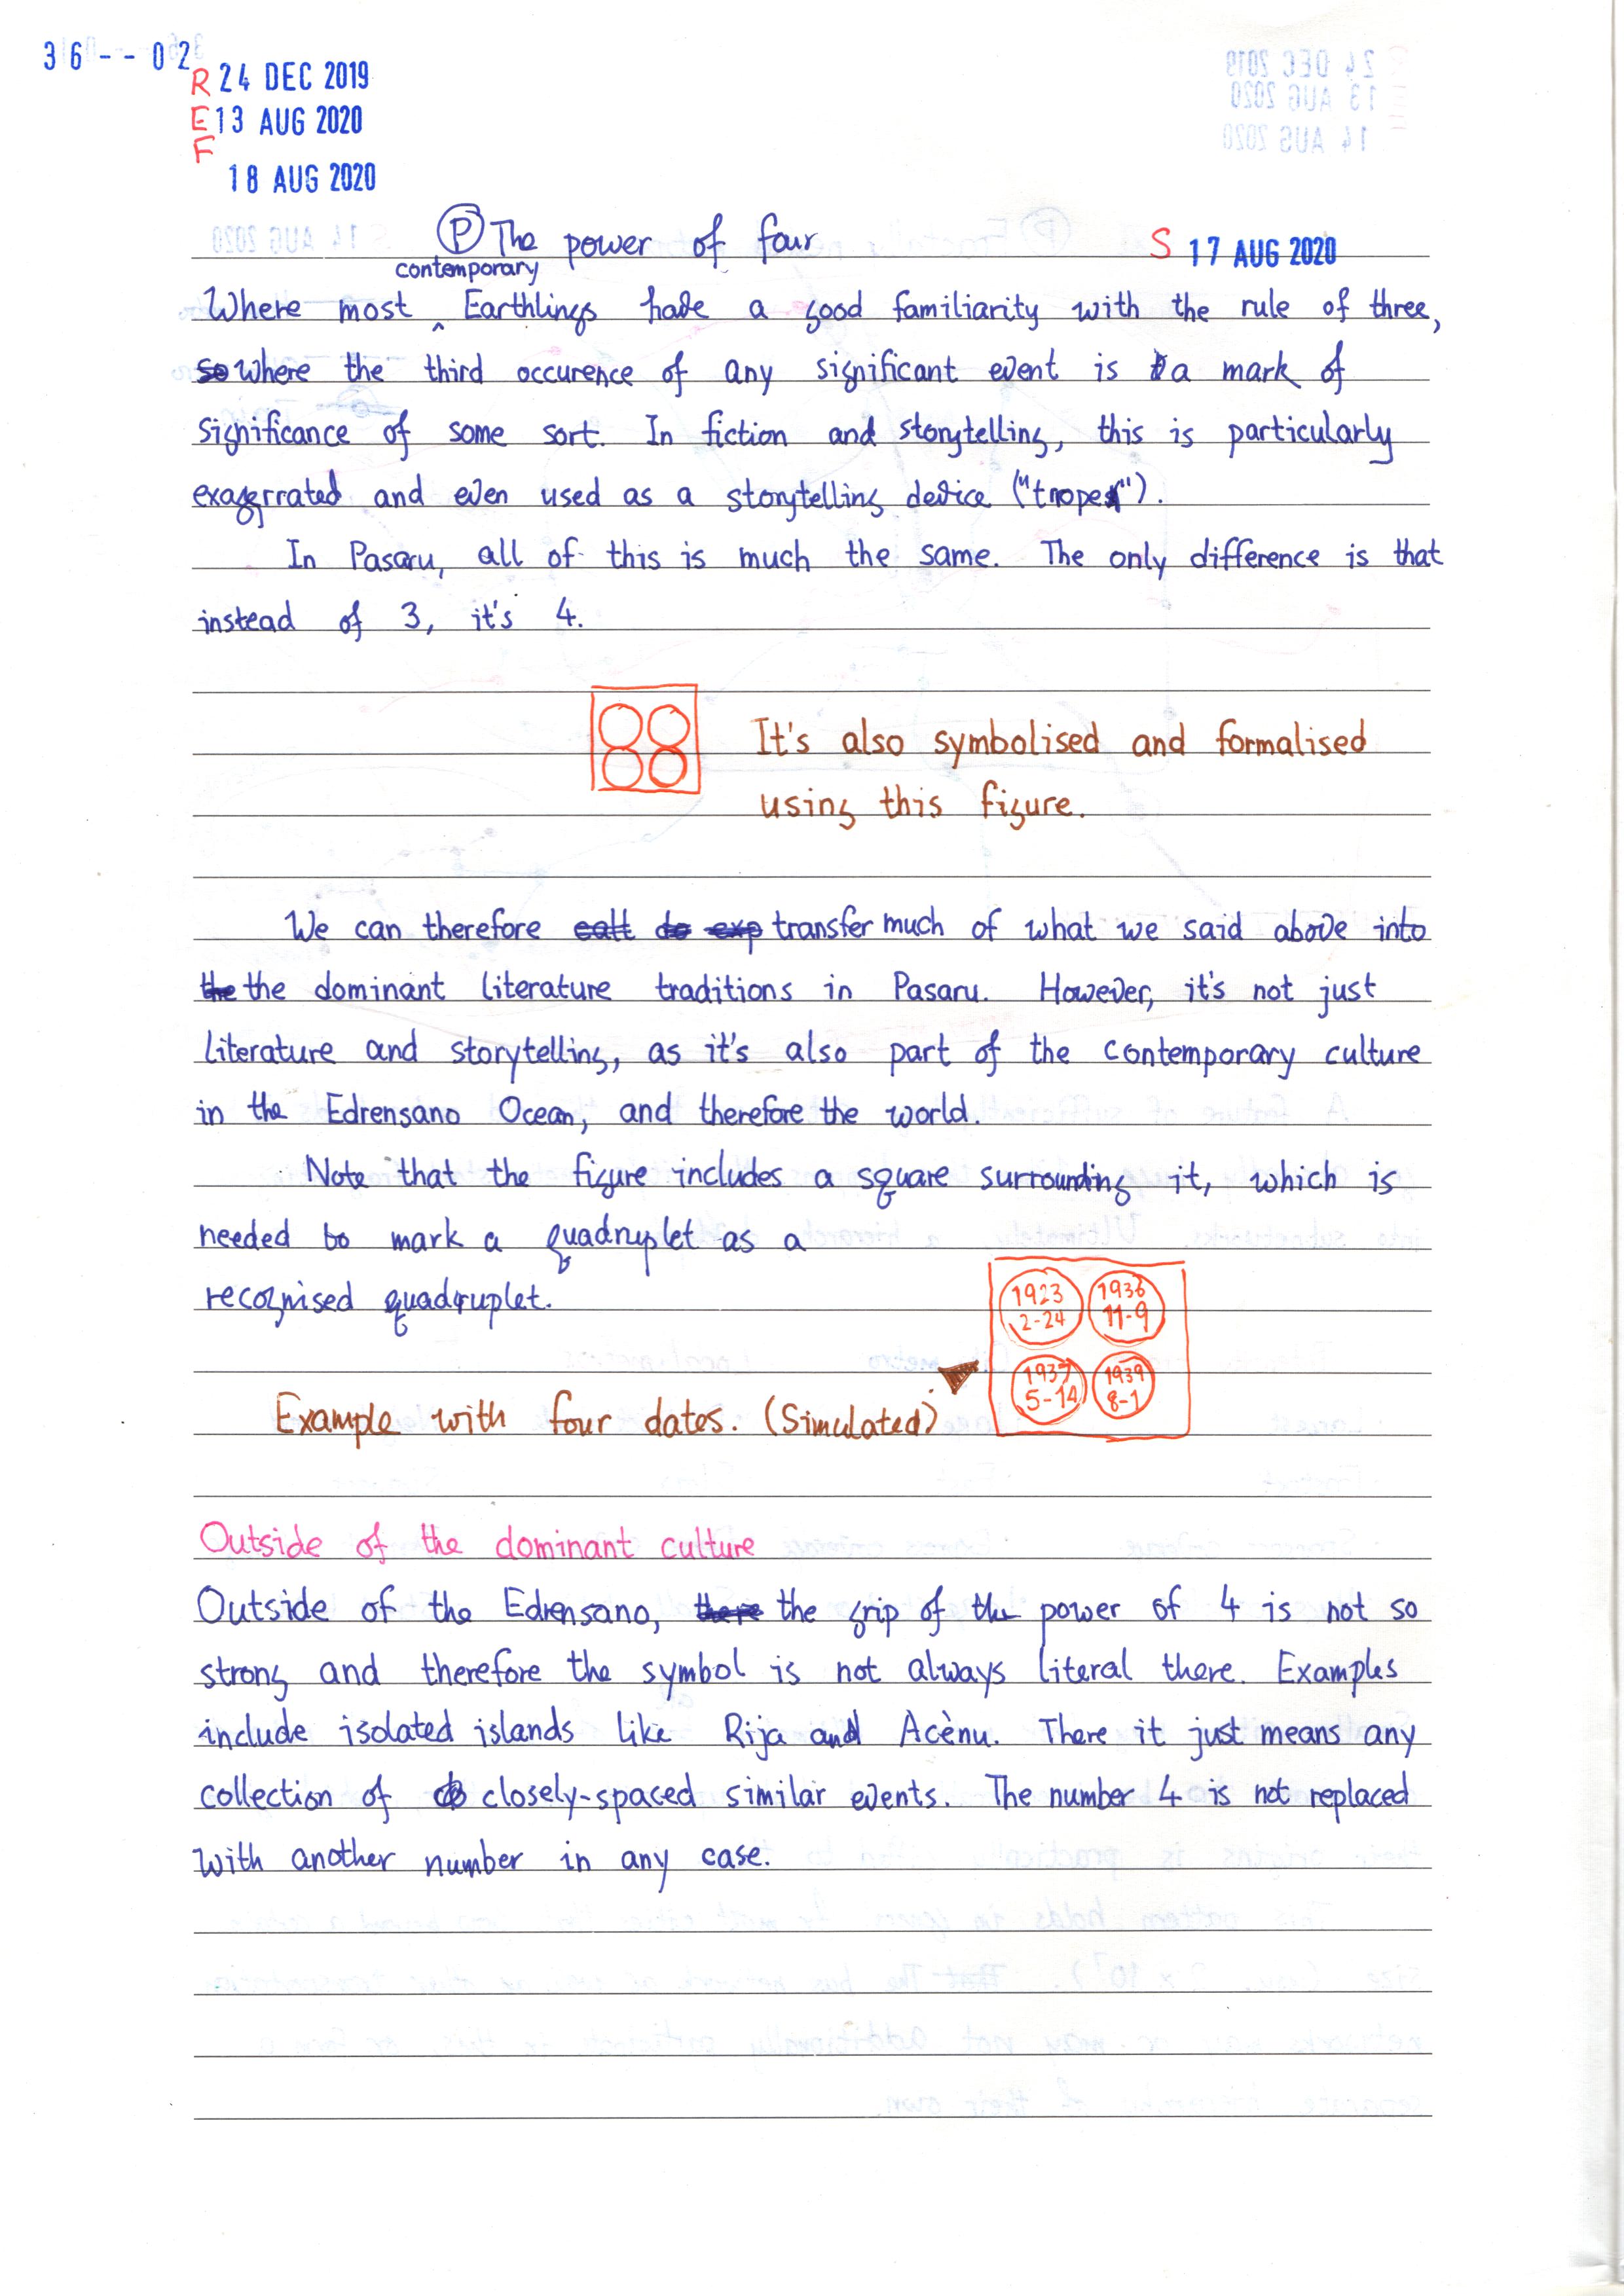 36--02
R 24 DEC 2019
E 13 AUG 2020
F
18 AUG 2020
P The power of four
S 17 AUG 2020
contemporary
Where most ^ Earthlings have a good familiarity with the rule of three,
so where the third occurence of any significant event is a mark of
significance of some sort. In fiction and storytelling, this is particularly
exaggerrated and even used as a storytelling device ("trope").
In Pasaru, all of this is much the same. The only difference is that
instead of 3, it's 4.
It's also symbolised and formalised
using this figure.
We can therefore transfer much of what we said above into
the the dominant literature traditions in Pasaru. However, it's not just
literature and storytelling, as it's also part of the contemporary culture
in the Edrensano Ocean, and therefore the world.
Note that the figure includes a square surrounding it, which is
needed to mark a quadruplet as a
recognised quadruplet.
1923
2-24
1936
11-9
1937
5-14
1939
8-1
Example with four dates. (Simulated)
Outside of the dominant culture
Outside of the Edrensano, there the grip of the power of 4 is not so
strong and therefore the symbol is not always literal there. Examples
include isolated islands like Rija and Acènu. There it just means any
collection of closely-spaced similar events. The number 4 is not replaced
with another number in any case.